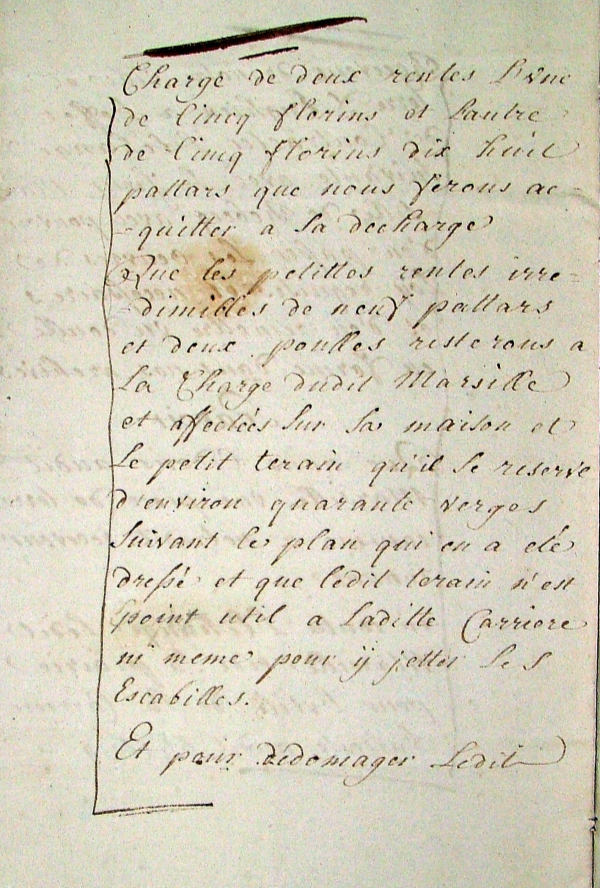 Charge de deux rentes L'vne
de Cincq florins et Lautre
de Cincq florins dix huit
pattars que nous ferons ac-
-quitter a sa decharge
Que les petittes rentes irre-
-dimibles de neuf pattars
et deux poulles resterons a
La Charge dudit Marsille
et affectées sur sa maison et
Le petit terain qu'il se reserve
d'environ quarante verges
suivant le plan qui en a eté
dressé et que ledit terain n'est
point util a Laditte Carriere
ni meme pour ÿ jetter Les
Escabilles.
Et pour dedomager Ledit